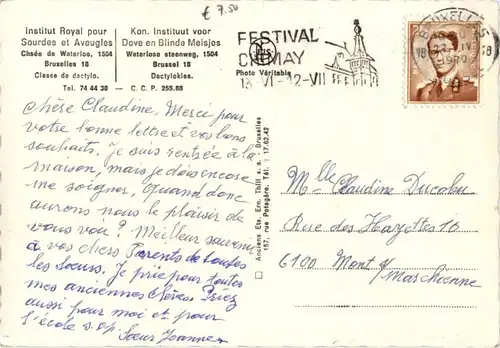 € 7.50
Institut Royal pour
Sourdes et Aveugles
Chsée de Waterloo, 1504
Bruxelles 18
Classe de dactylo.
Kon. Instituut voor
Dove en Blinde Meisjes
Waterloose steenweg, 1504
Brussel 18
Dactyloklas.
Tel. 74 44 30 — C. C. P. 255.88
FESTIVAL
CHIMAY
Photo Véritable
13-VI-12-VII
BRUXELLES
18
1970
Chère Claudine, Merci pour
votre bonne lettre et vos bons
souhaits. Je suis rentrée à la
maison, mais je dois encore
me soigner, quand donc
aurons nous le plaisir de
vous voir ? Meilleur souvenir
à vos chers Parents de toutes
les Sœurs. Je prie pour toutes
mes anciennes élèves. Priez
aussi pour moi et pour
l'école s.v.p. Sœur Jeanne
Anciens Ets. Ern. Thill s. a. - Bruxelles
157, rue Potagère. Tél. : 17.62.42
Mlle Claudine Ducolou
Rue des Hayettes 16
6100 Mont s/
Marchienne